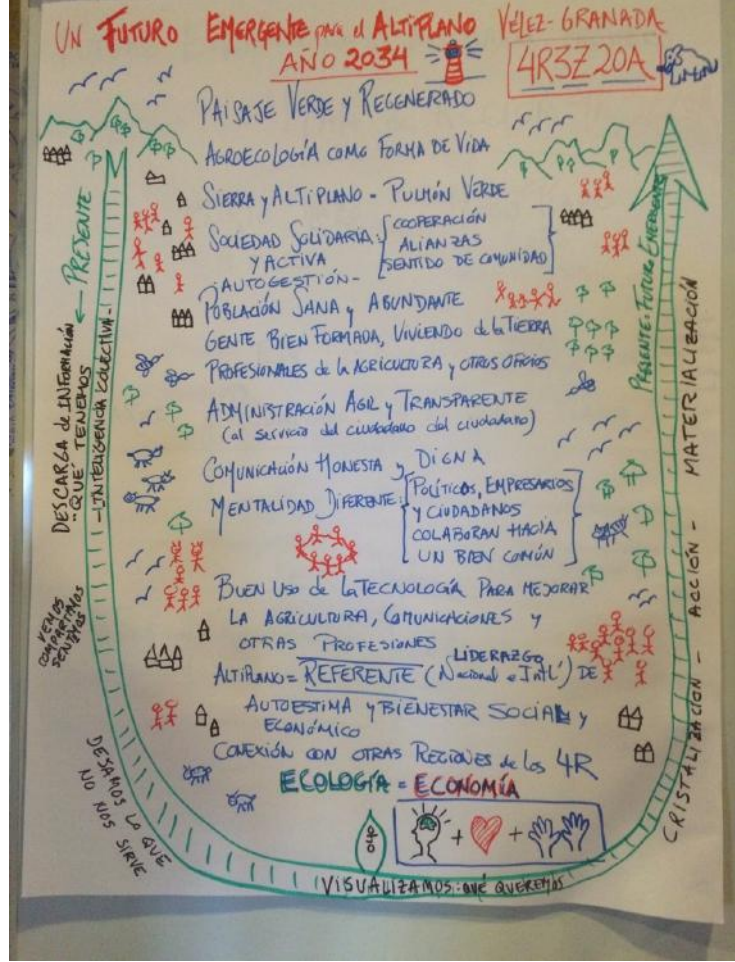 UN FUTURO EMERGENTE para el ALTIPLANO VÉLEZ-GRANADA
AÑO 2034
4R3Z20A
PAISAJE VERDE Y REGENERADO
AGROECOLOGÍA COMO FORMA DE VIDA
SIERRA y ALTIPLANO - PULMÓN VERDE
SOCIEDAD SOLIDARIA: COOPERACIÓN
Y ACTIVA ALIANZAS
SENTIDO DE COMUNIDAD
¡AUTOGESTIÓN-
POBLACIÓN SANA y ABUNDANTE
GENTE BIEN FORMADA, VIVIENDO de la TIERRA
PROFESIONALES de la AGRICULTURA y OTROS OFICIOS
ADMINISTRACIÓN AGIL y TRANSPARENTE
(al servicio del ciudadano del ciudadano)
COMUNICACIÓN HONESTA y DIGNA
MENTALIDAD DIFERENTE: POLÍTICOS, EMPRESARIOS
Y CIUDADANOS
COLABORAN HACIA
UN BIEN COMÚN
BUEN USO de la TECNOLOGÍA PARA MEJORAR
LA AGRICULTURA, COMUNICACIONES y
OTRAS PROFESIONES
LIDERAZGO
ALTIPLANO = REFERENTE (Nacional e Intl') DE
AUTOESTIMA y BIENESTAR SOCIAL y
ECONÓMICO
CONEXIÓN CON OTRAS REGIONES de los 4R
ECOLOGÍA = ECONOMÍA
+ +
PRESENTE
DESCARGA de INFORMACIÓN
"QUÉ TENEMOS
-INTELIGENCIA COLECTIVA-
VEMOS
COMPARTIMOS
SENTIMOS
DEJAMOS LO QUE
NO NOS SIRVE
ojo
VISUALIZAMOS: QUÉ QUEREMOS
CRISTALIZACIÓN - ACCIÓN - MATERIALIZACIÓN
PRESENTE: FUTURO EMERGENTE